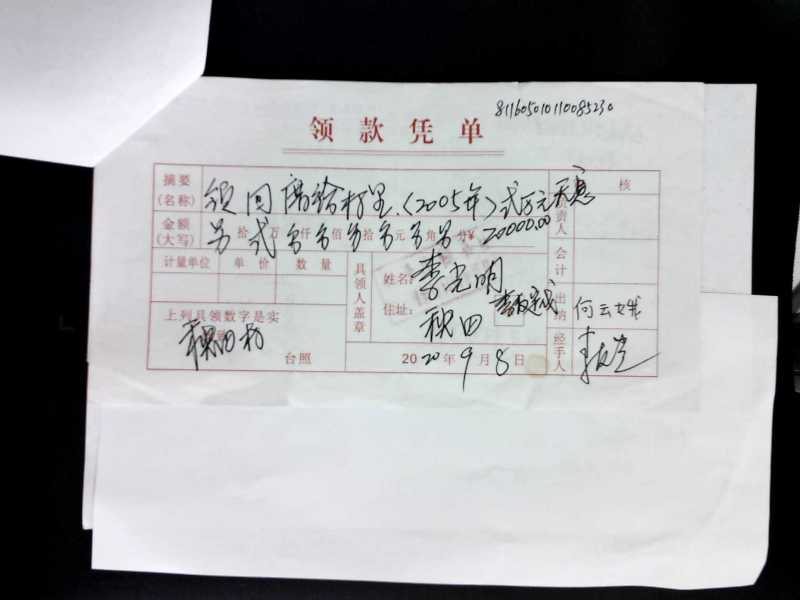 811605010110085230
领款凭单
摘要(名称) 领回借给村里.(2005年)贰万元 核
金额(大写) 贰 拾 万 仟 佰 拾 元 角 分¥ 20000.00 负责人
计量单位 单价 数量 具领人盖章 姓名: 李光明 会计
住址: 秧田 出纳 何云娥
上列具领数字是实
台照 2020年9月8日 经手人